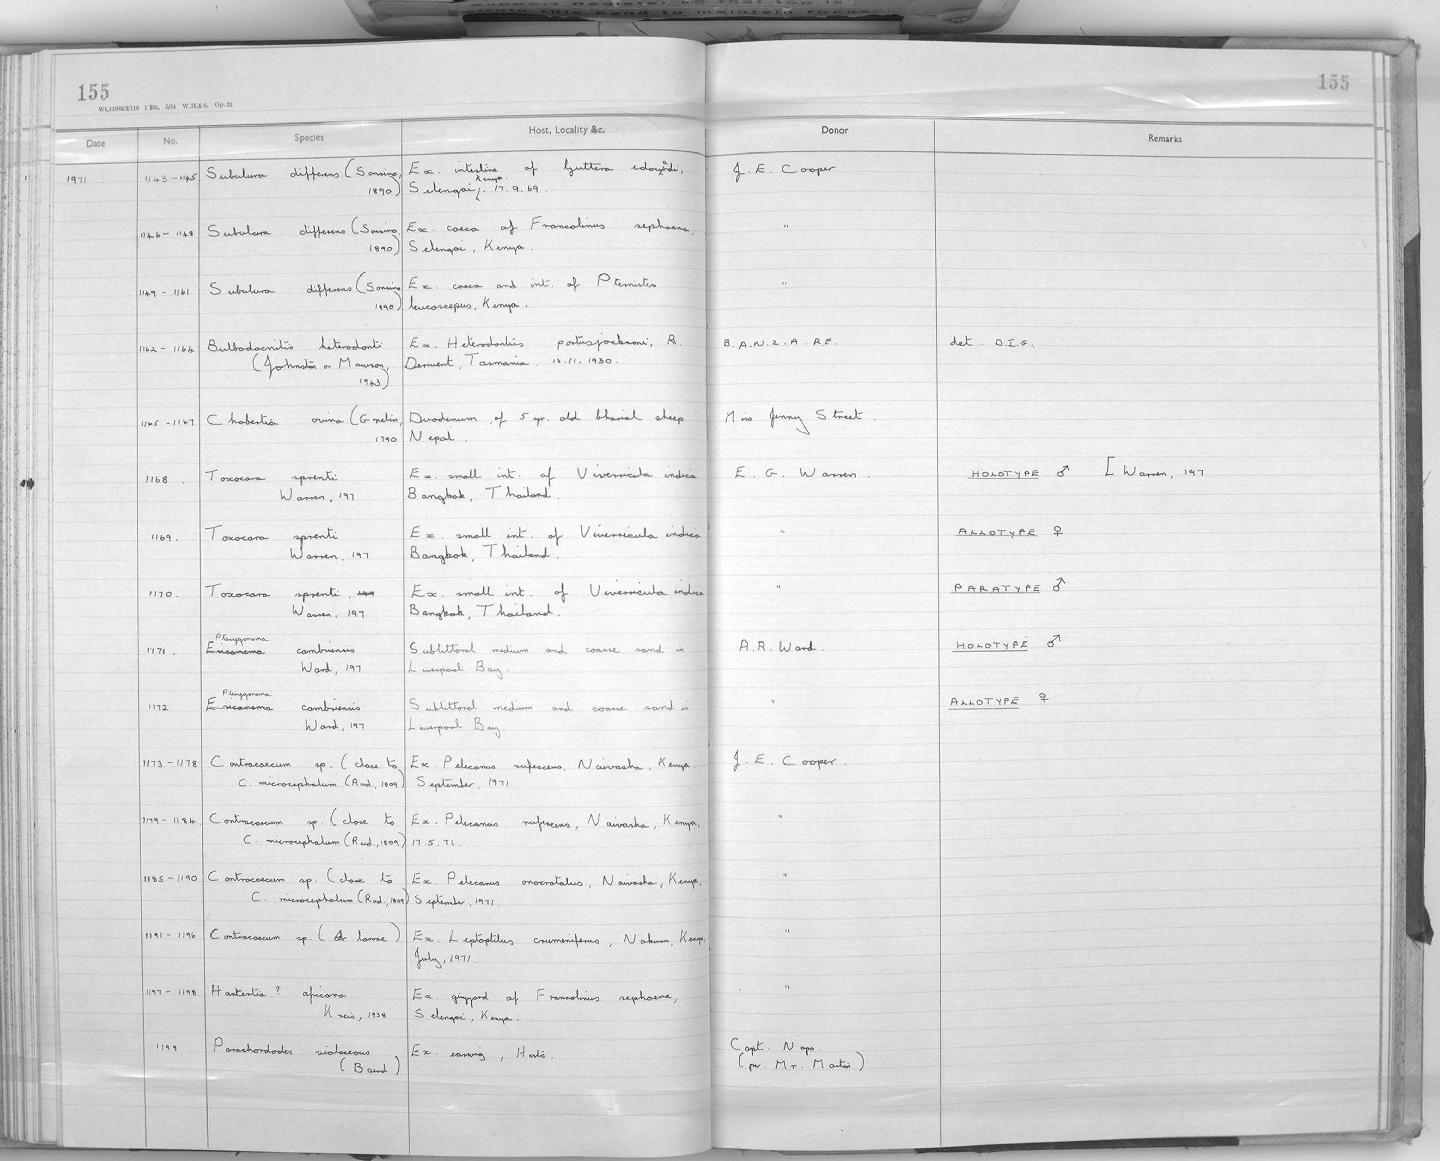 155
155
Date No. Species Host, Locality &c. Donor Remarks
1971 1143-1145 Subulura differens (Sonsino, Ex. intestine of Guttera edouardi, J. E. Cooper
1890) Selengai, Kenya. 17.9.69.
1146-1148 Subulura differens (Sonsino, Ex. caeca of Francolinus sephaena, "
1890) Selengai, Kenya.
1149-1161 Subulura differens (Sonsino, Ex. caeca and int. of Pternistes "
1890) leucoscepus, Kenya.
1162-1164 Bulbodacnitis heterodonti Ex. Heterodontus portusjacksoni, R. B.A.N.Z.A.R.E. det. D.I.G.
(Johnston & Mawson, Derwent, Tasmania. 13.11.1930.
1943)
1165-1167 Chabertia ovina (Gmelin, Duodenum of 5 yr. old bharial sheep Miss Jenny Street.
1790 Nepal.
1168. Toxocara sprenti Ex. small int. of Viverricula indica E. G. Warren. HOLOTYPE ♂ [Warren, 197
Warren, 197 Bangkok, Thailand.
1169. Toxocara sprenti Ex. small int. of Viverricula indica " ALLOTYPE ♀
Warren, 197 Bangkok, Thailand.
1170. Toxocara sprenti, Ex. small int. of Viverricula indica " PARATYPE ♂
Warren, 197 Bangkok, Thailand.
Pterygonema
1171. Ericonema cambriensis Sublittoral medium and coarse sand in A.R. Ward. HOLOTYPE ♂
Ward, 197 Liverpool Bay.
Pterygonema
1172 Ericonema cambriensis Sublittoral medium and coarse sand in " ALLOTYPE ♀
Ward, 197 Liverpool Bay.
1173-1178 Contracaecum sp. (close to Ex. Pelecanus rufescens, Naivasha, Kenya. J. E. Cooper.
C. microcephalum (Rud., 1809) September, 1971
1179-1184. Contracaecum sp. (close to Ex. Pelecanus rufescens, Naivasha, Kenya, "
C. microcephalum (Rud., 1809) 17.5.71.
1185-1190 Contracaecum sp. (close to Ex. Pelecanus onocrotalus, Naivasha, Kenya, "
C. microcephalum (Rud., 1809) September, 1971.
1191-1196 Contracaecum sp. (larvae) Ex. Leptoptilus crumeniferus, Nakuru, Kenya, "
July, 1971.
1197-1198 Hartertia ? africana Ex. gizzard of Francolinus sephaena, "
Kreis, 1938 Selengai, Kenya.
1199 Parachordodes violaceous Ex. earwig, Herts. Capt. Nops.
(Baird) (per. Mr. Martin)